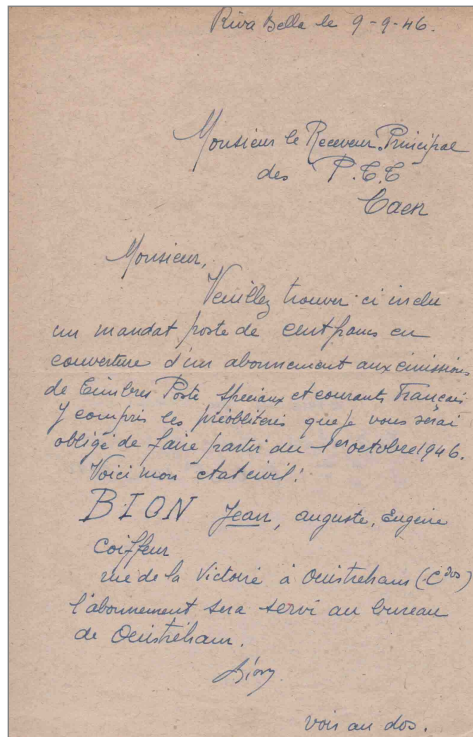 Riva Bella le 9-9-46.
Monsieur le Receveur Principal
des P.T.T
Caen
Monsieur,
Veuillez trouver ci inclu
un mandat poste de cent francs en
couverture d'un abonnement aux émissions
de Timbres Poste spéciaux et courants Français
y compris les préoblitérés que je vous serai
obligé de faire partir du 1er octobre 1946.
Voici mon état civil:
BION Jean, auguste, Eugène
coiffeur
rue de la Victoire à Ouistreham (Cdos)
l'abonnement sera servi au bureau
de Ouistreham.
Bion
voir au dos.